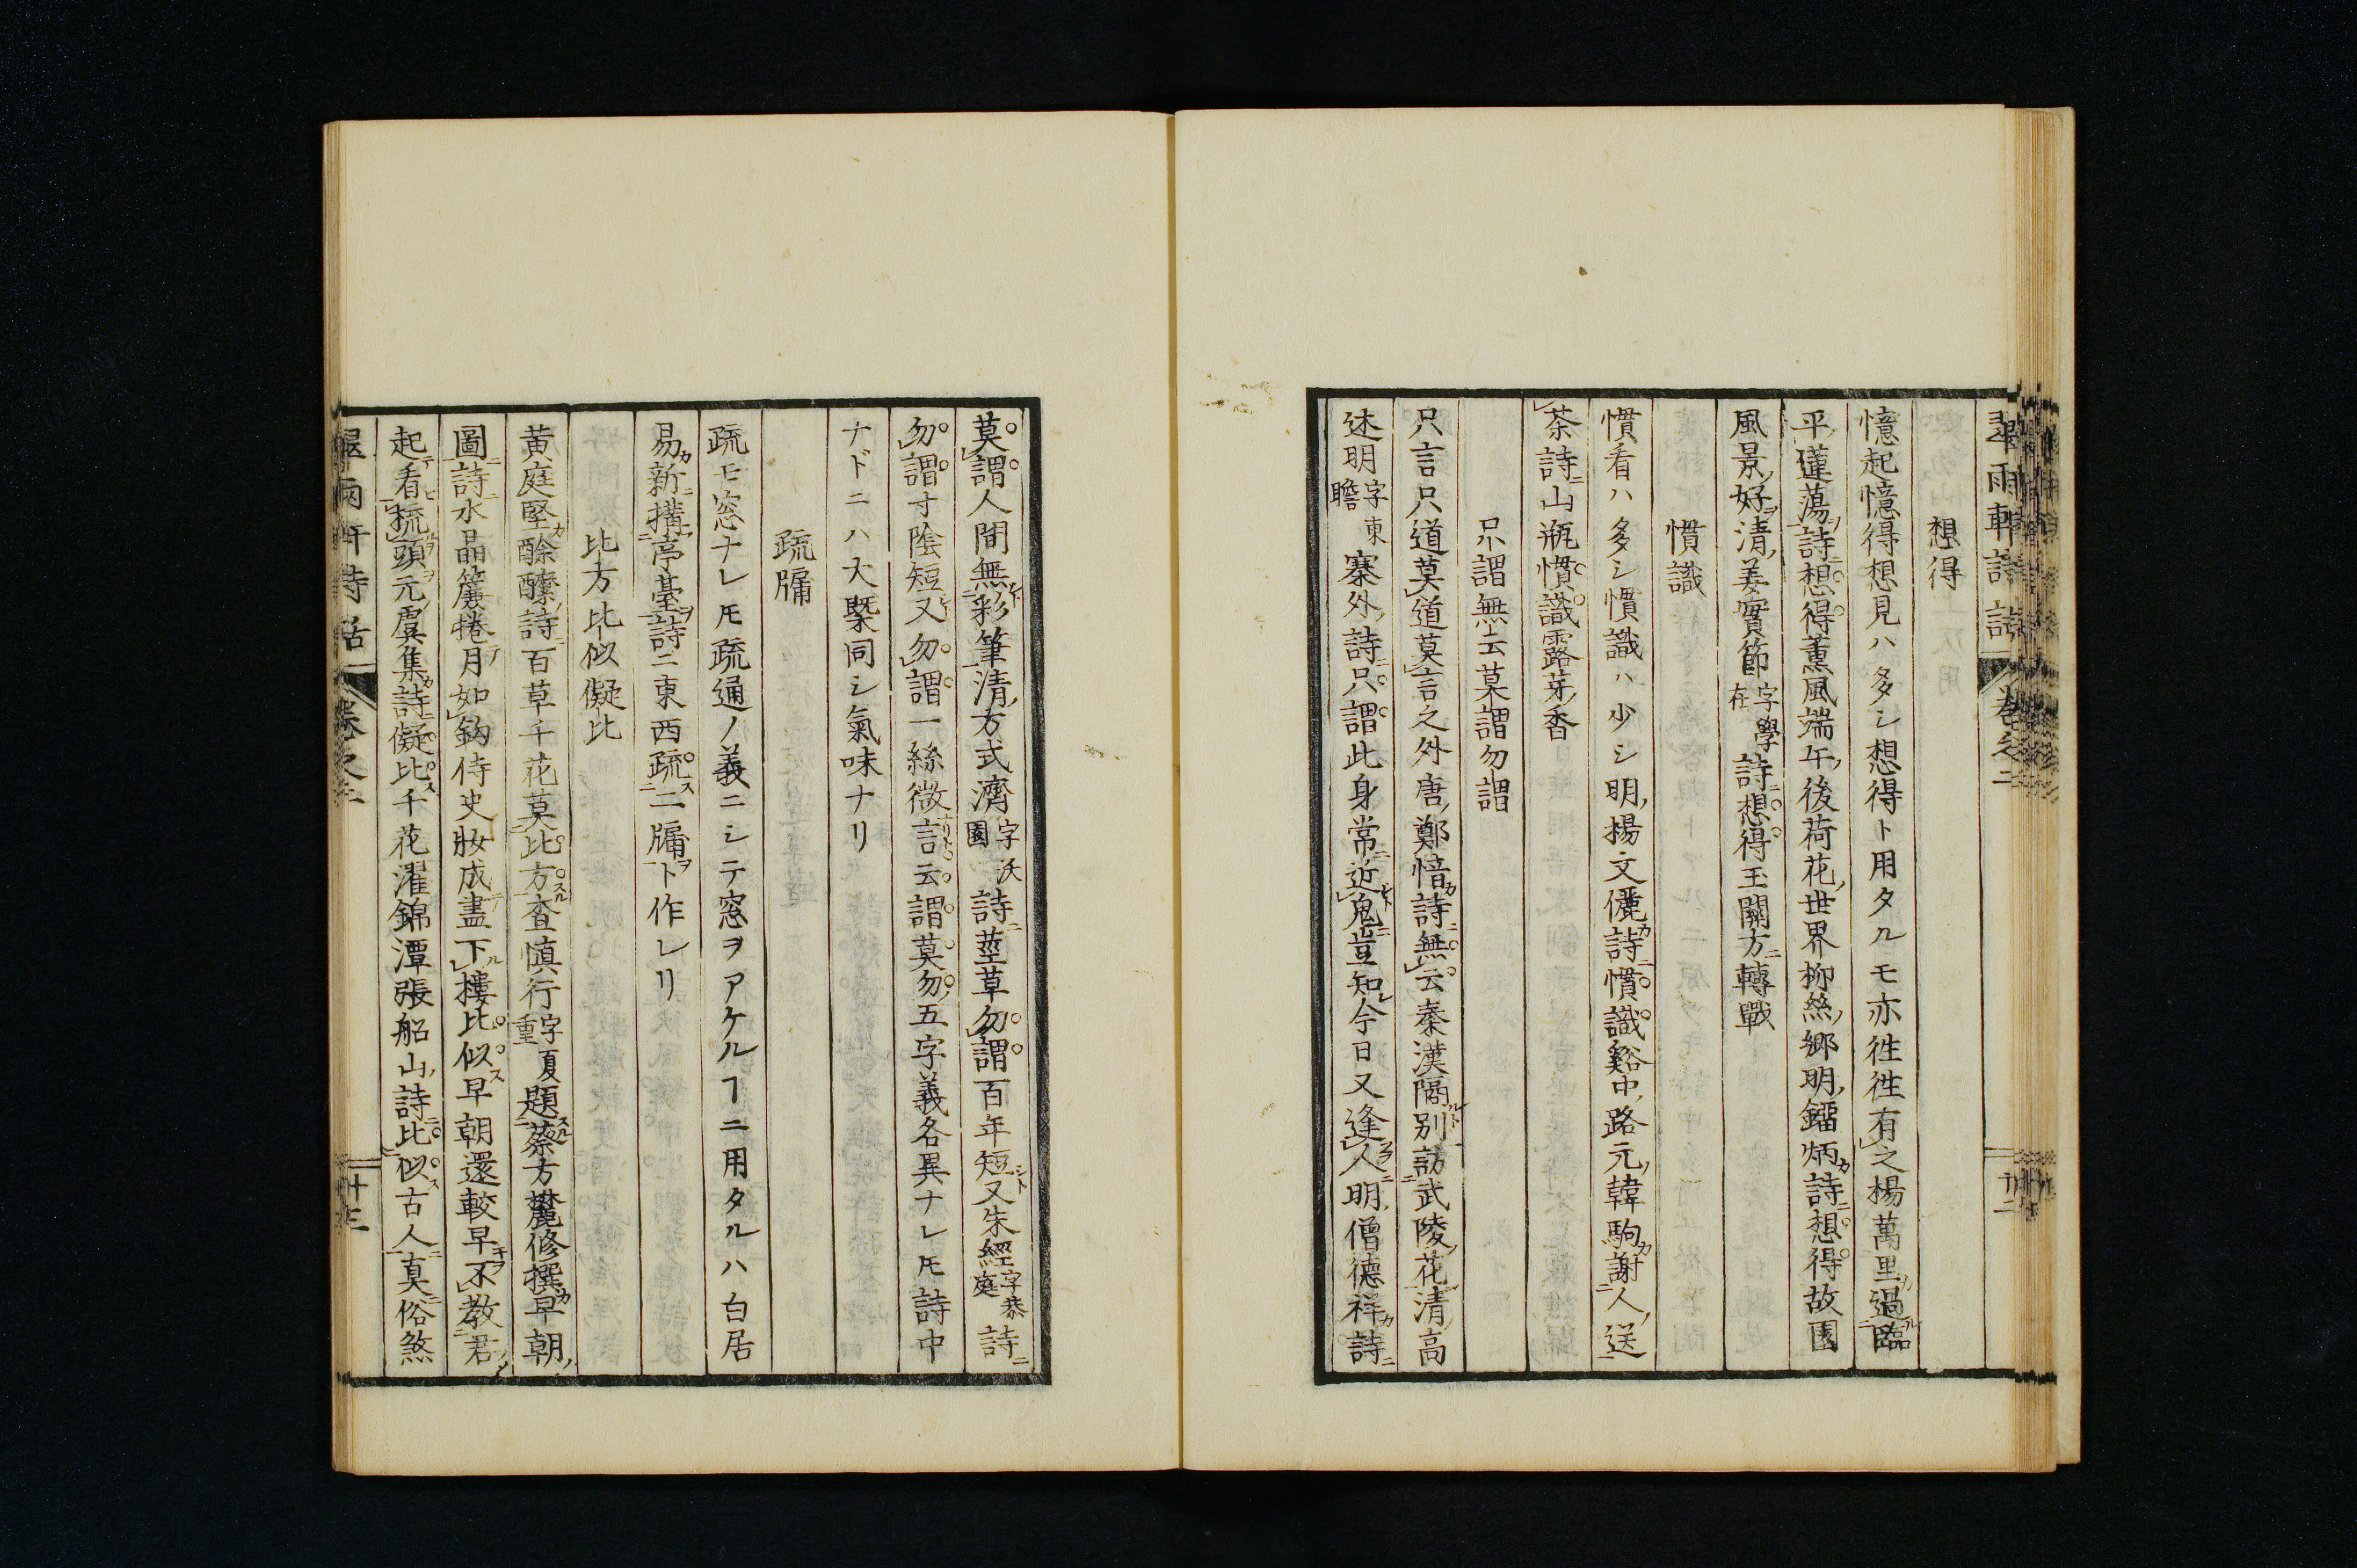 翠雨軒詩話 巻之二 十二
想得
憶起憶得想見ハ多シ想得ト用タルモ亦徃徃有之楊萬里過臨
平蓮蕩詩想得薫風端午後荷花世界柳絲鄉明鐳炳詩想得故園
風景好清姜實節字學在詩想得玉關方轉戰
慣識
慣看ハ多シ慣識ハ少シ明楊文儷詩慣識谿中路元韓駒謝人送
茶詩山瓶慣識露芽香
只謂無云莫謂勿謂
只言只道莫道莫言之外唐鄭愔詩無云秦漢隔別訪武陵花清高
述明字東瞻寨外詩只謂此身常近鬼豈知今日又逢人明僧德祥詩
莫謂人間無彩筆清方式濟字沃園詩莖草勿謂百年短又朱經字恭庭詩
勿謂寸陰短又勿謂一絲微言云謂莫勿五字義各異ナレ𪜈詩中
ナドニハ大槩同シ氣味ナリ
疏牖
疏モ窓ナレ𪜈疏通ノ義ニシテ窓ヲアケルヿニ用タルハ白居
易新搆亭臺詩ニ東西疏二牖ト作レリ
比方比似儗比
黄庭堅酴醿詩百草千花莫比方査慎行字夏重題蔡方麓修撰早朝
圖詩水晶簾捲月如鈎侍史妝成盡下樓比似早朝還較早不教君
起看梳頭元虞集詩儗比千花濯錦潭張船山詩比似古人真俗煞
翠雨軒詩話 巻之二 十三